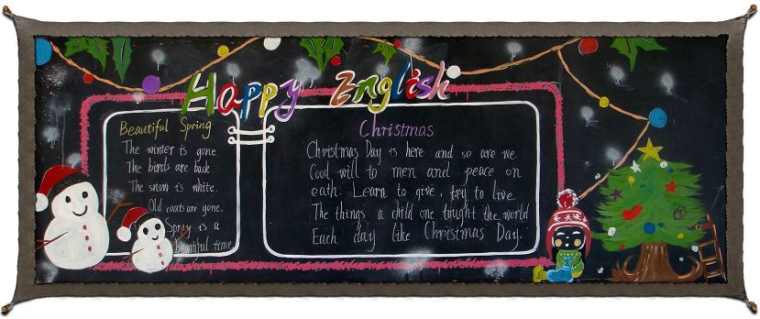 Happy English
Beautiful Spring
The winter is gone
The birds are back
The snow is white.
Old coats are gone.
Spriy is a
beautiful time
Christmas
Christmas Day is here and so are we
Good will to men and peace on
eath. Learn to give, try to live
The things a child one tought the world
Each day like Christmas Day.